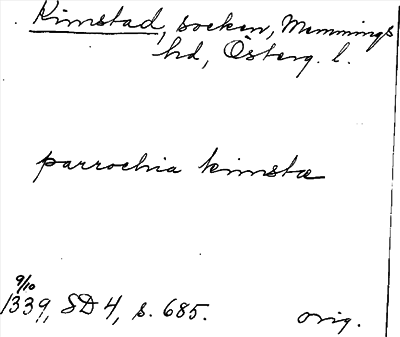 Kimstad, socken, Memmings
hd, Österg. l.
parrochia kimstæ
9/10
1339, SD 4, s. 685.
orig.